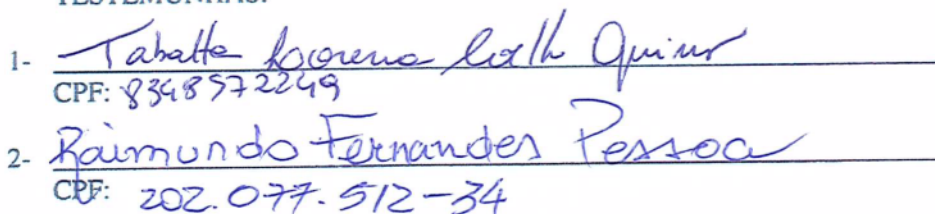 TESTEMUNHAS:
1- Tabatta Lorena Coelh Quins
CPF: 8348572249
2- Raimundo Fernandes Pessoa
CPF: 202.077.512-34